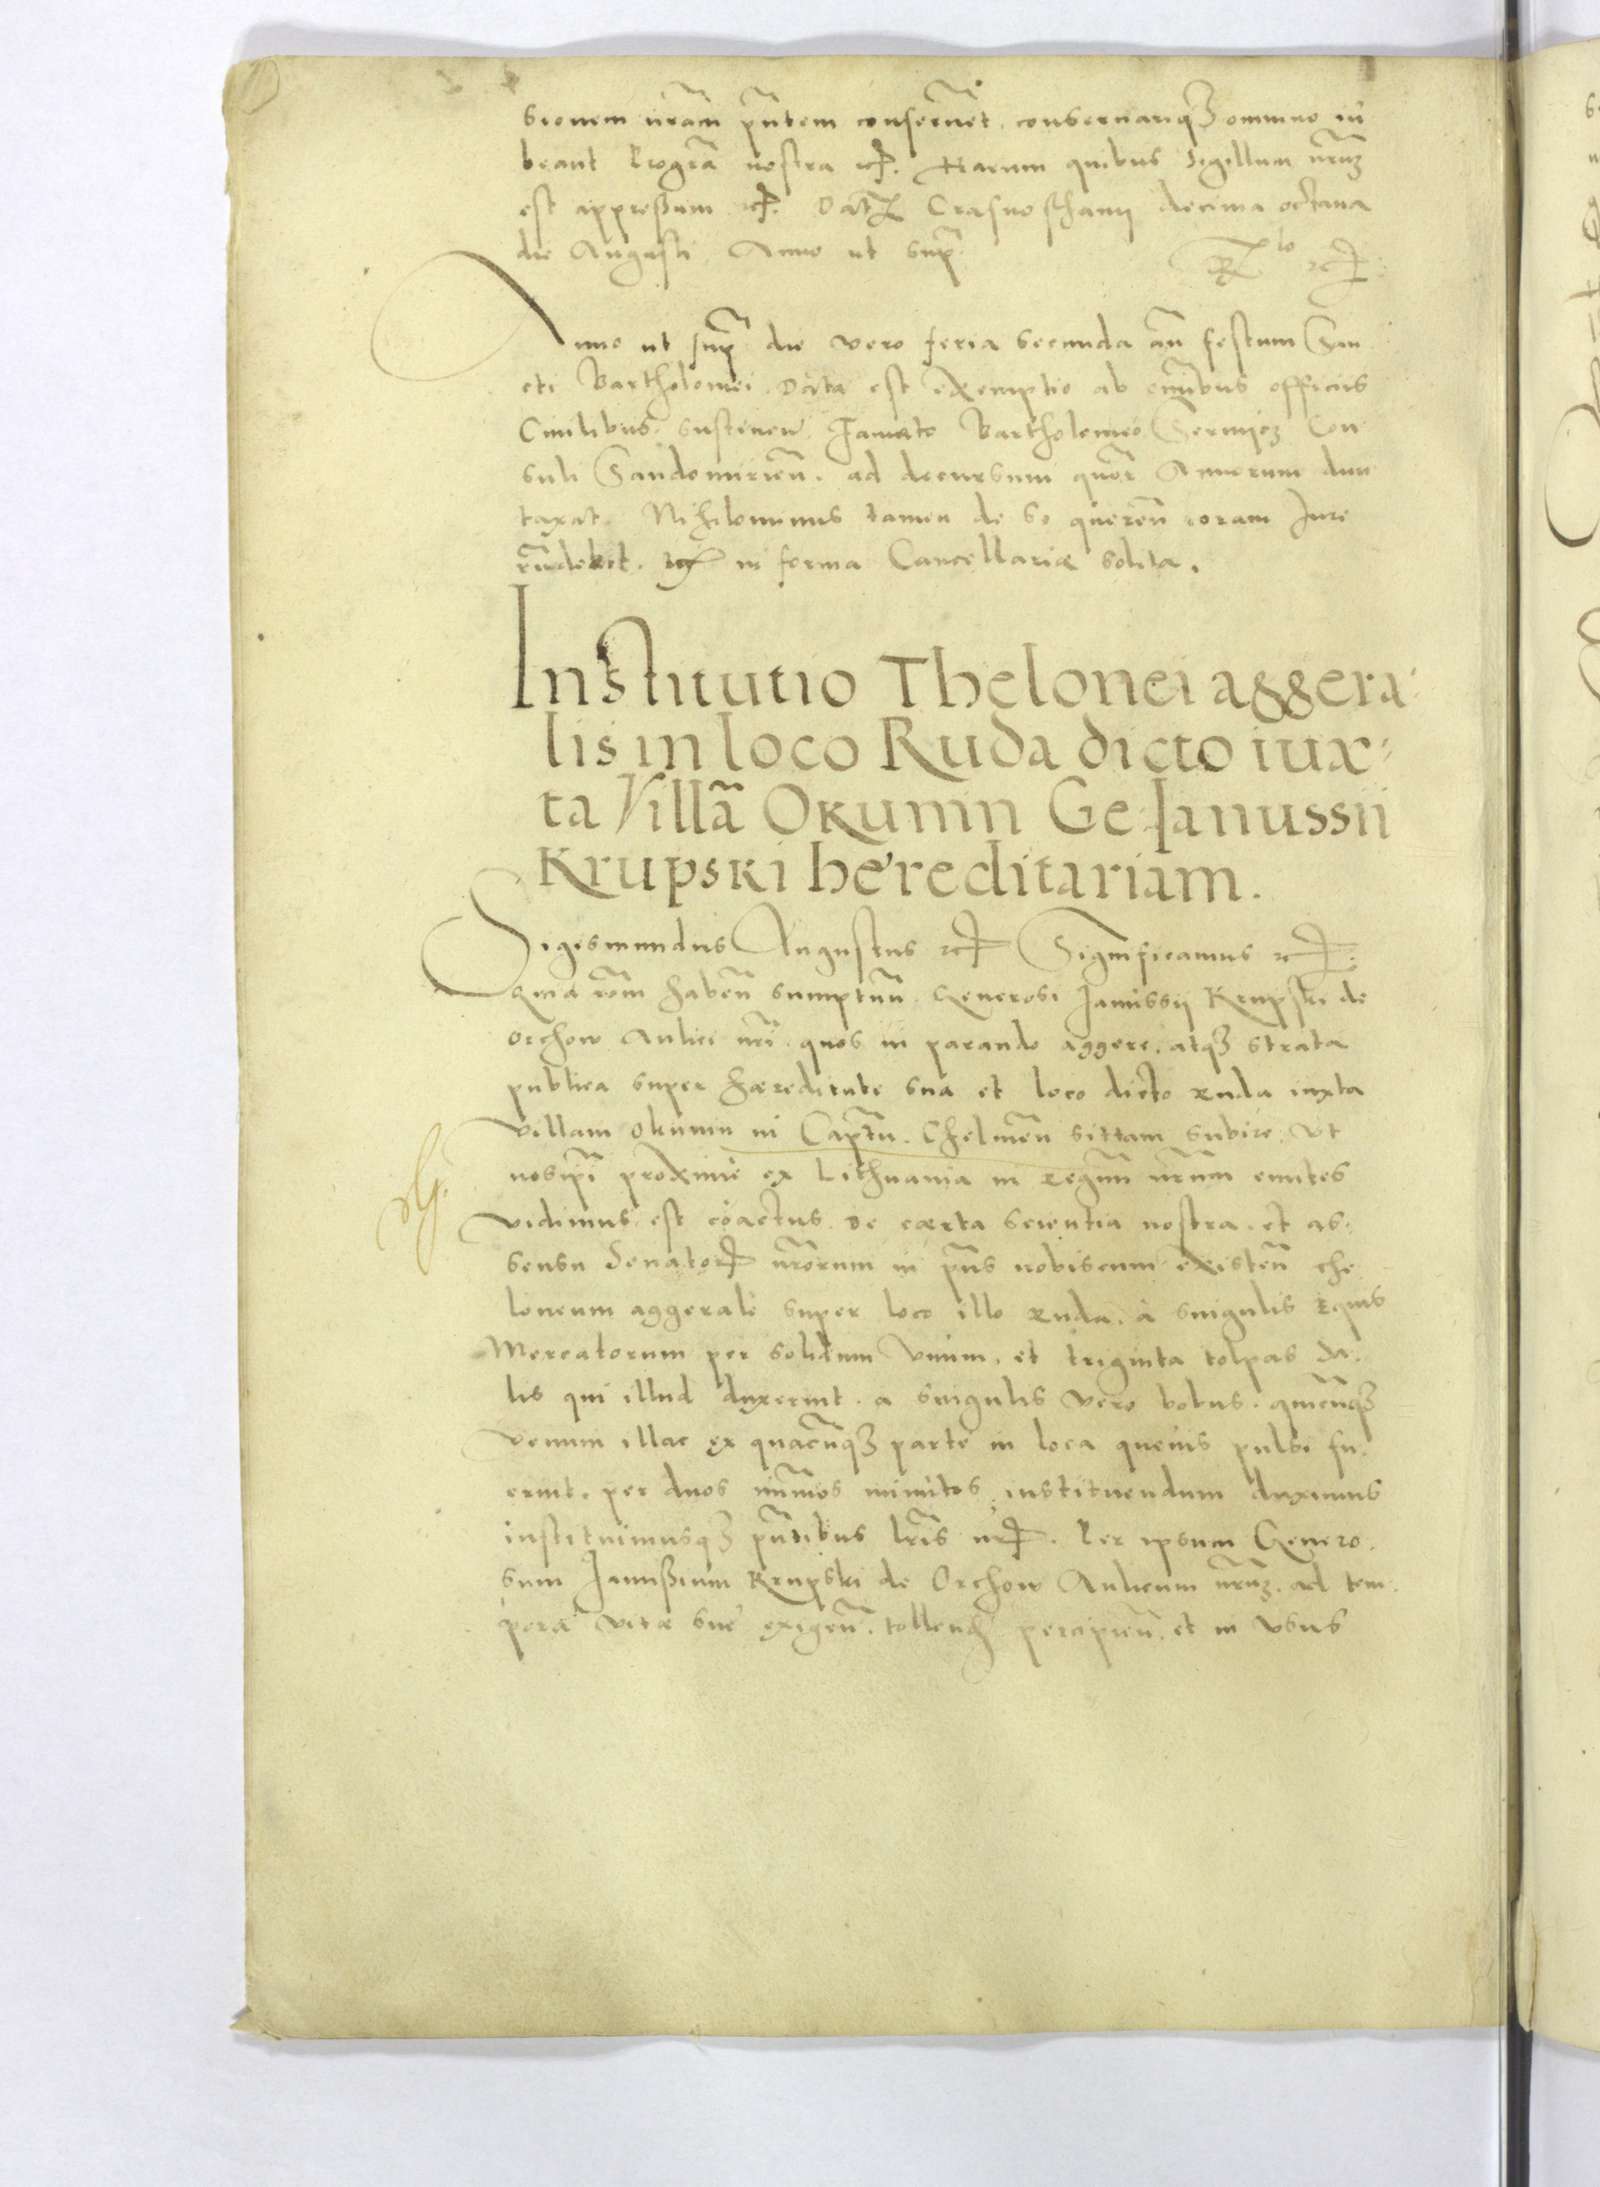 sionem nr̃am pñtem conseruẽt, conseruariq₃ omnino iu
beant Pro gr̃a nostra etc. Harum quibus Sigillum nrũm
est appressum etc. Dat Crasnosthauij decima octaua
die Augusti Anno ut sup̃
Anno ut sup̃ die vero feria secunda añ festum San
cti Bartholomei Data est exemptio ab om̃ibus officiis
Ciuilibus sustinen̄ Famato Bartholomeo Con
suli Sandomirien̄. ad decursum quor Annorum dun
taxat. Nihilominus tamen de se queren̄ coram Jure
rñdebit. etc in forma Cancellariæ solita.
Institutio Thelonei aggera
lis in loco Ruda dicto iux-
ta Villã Okunin Ge Ianussii
Krupski hereditariam.
Sigismundus Augustus etc Significamus etc
Quia rõm haben̄ sumptuũ Generosi Janussij Krupski de
Orchow Aulici nr̃i quos in parando aggere, atq₃ strata
publica super hæreditate sua et loco dicto Ruda iuxta
villam Okunin in Capt̃u. Chelmen̄ sittam subire, ut
nosip̃i proxime ex Lithuania in Regnũ nr̃um euntes
vidimus est coactus. De certa scientia nostra. et as-
sensu Senator nr̃orum in pñs nobiscum existen̄ the
loneum aggerale super loco illo Ruda, à singulis Equis
Mercatorum per solidum vnum, et triginta tolpas sa-
lis qui illud duxerint. a singulis vero bobus. quicunq₃
venum illac ex quacunq₃ parte in loca queuis pulsi fu-
erint. per duos nũmos minutos instituendum duximus
instituimusq₃ pñtibus lr̃is nr. Per ipsum Genero-
sum Janussium Krupski de Orchow Aulicum nrũm. ad tem-
pora vitæ suæ exigen̄. tollend percipien̄. et in vsus